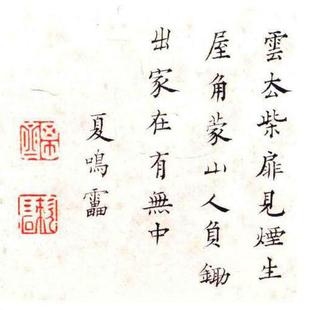 雲去柴扉見煙生
屋角蒙山人負鋤
出家在有無中
夏鳴雷